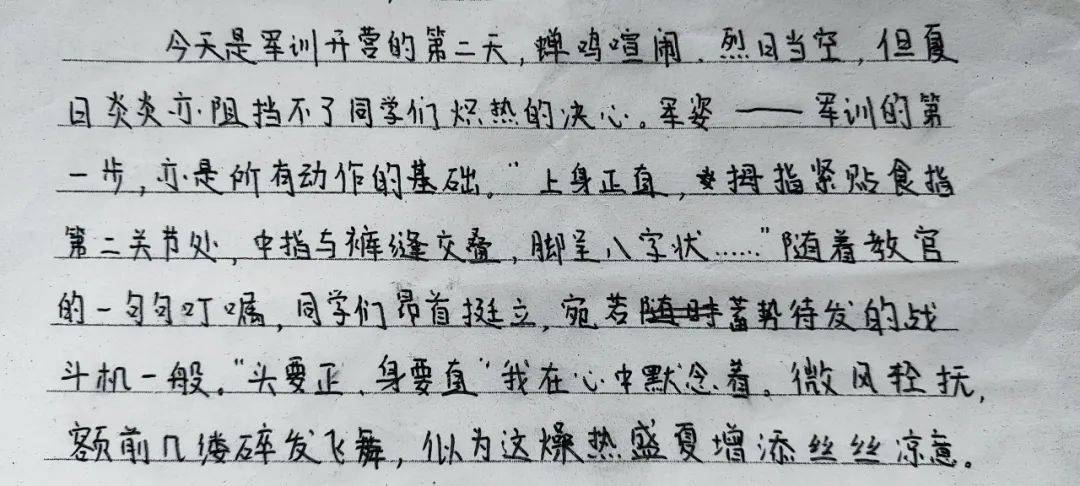 今天是军训开营的第二天，蝉鸣喧闹、烈日当空，但夏
日炎炎亦阻挡不了同学们炽热的决心。军姿——军训的第
一步，亦是所有动作的基础。“上身正直，拇指紧贴食指
第二关节处，中指与裤缝交叠，脚呈八字状……”随着教官
的一句句叮嘱，同学们昂首挺立，宛若蓄势待发的战
斗机一般。“头要正、身要直”我在心中默念着。微风轻抚，
额前几缕碎发飞舞，似为这燥热盛夏增添丝丝凉意。